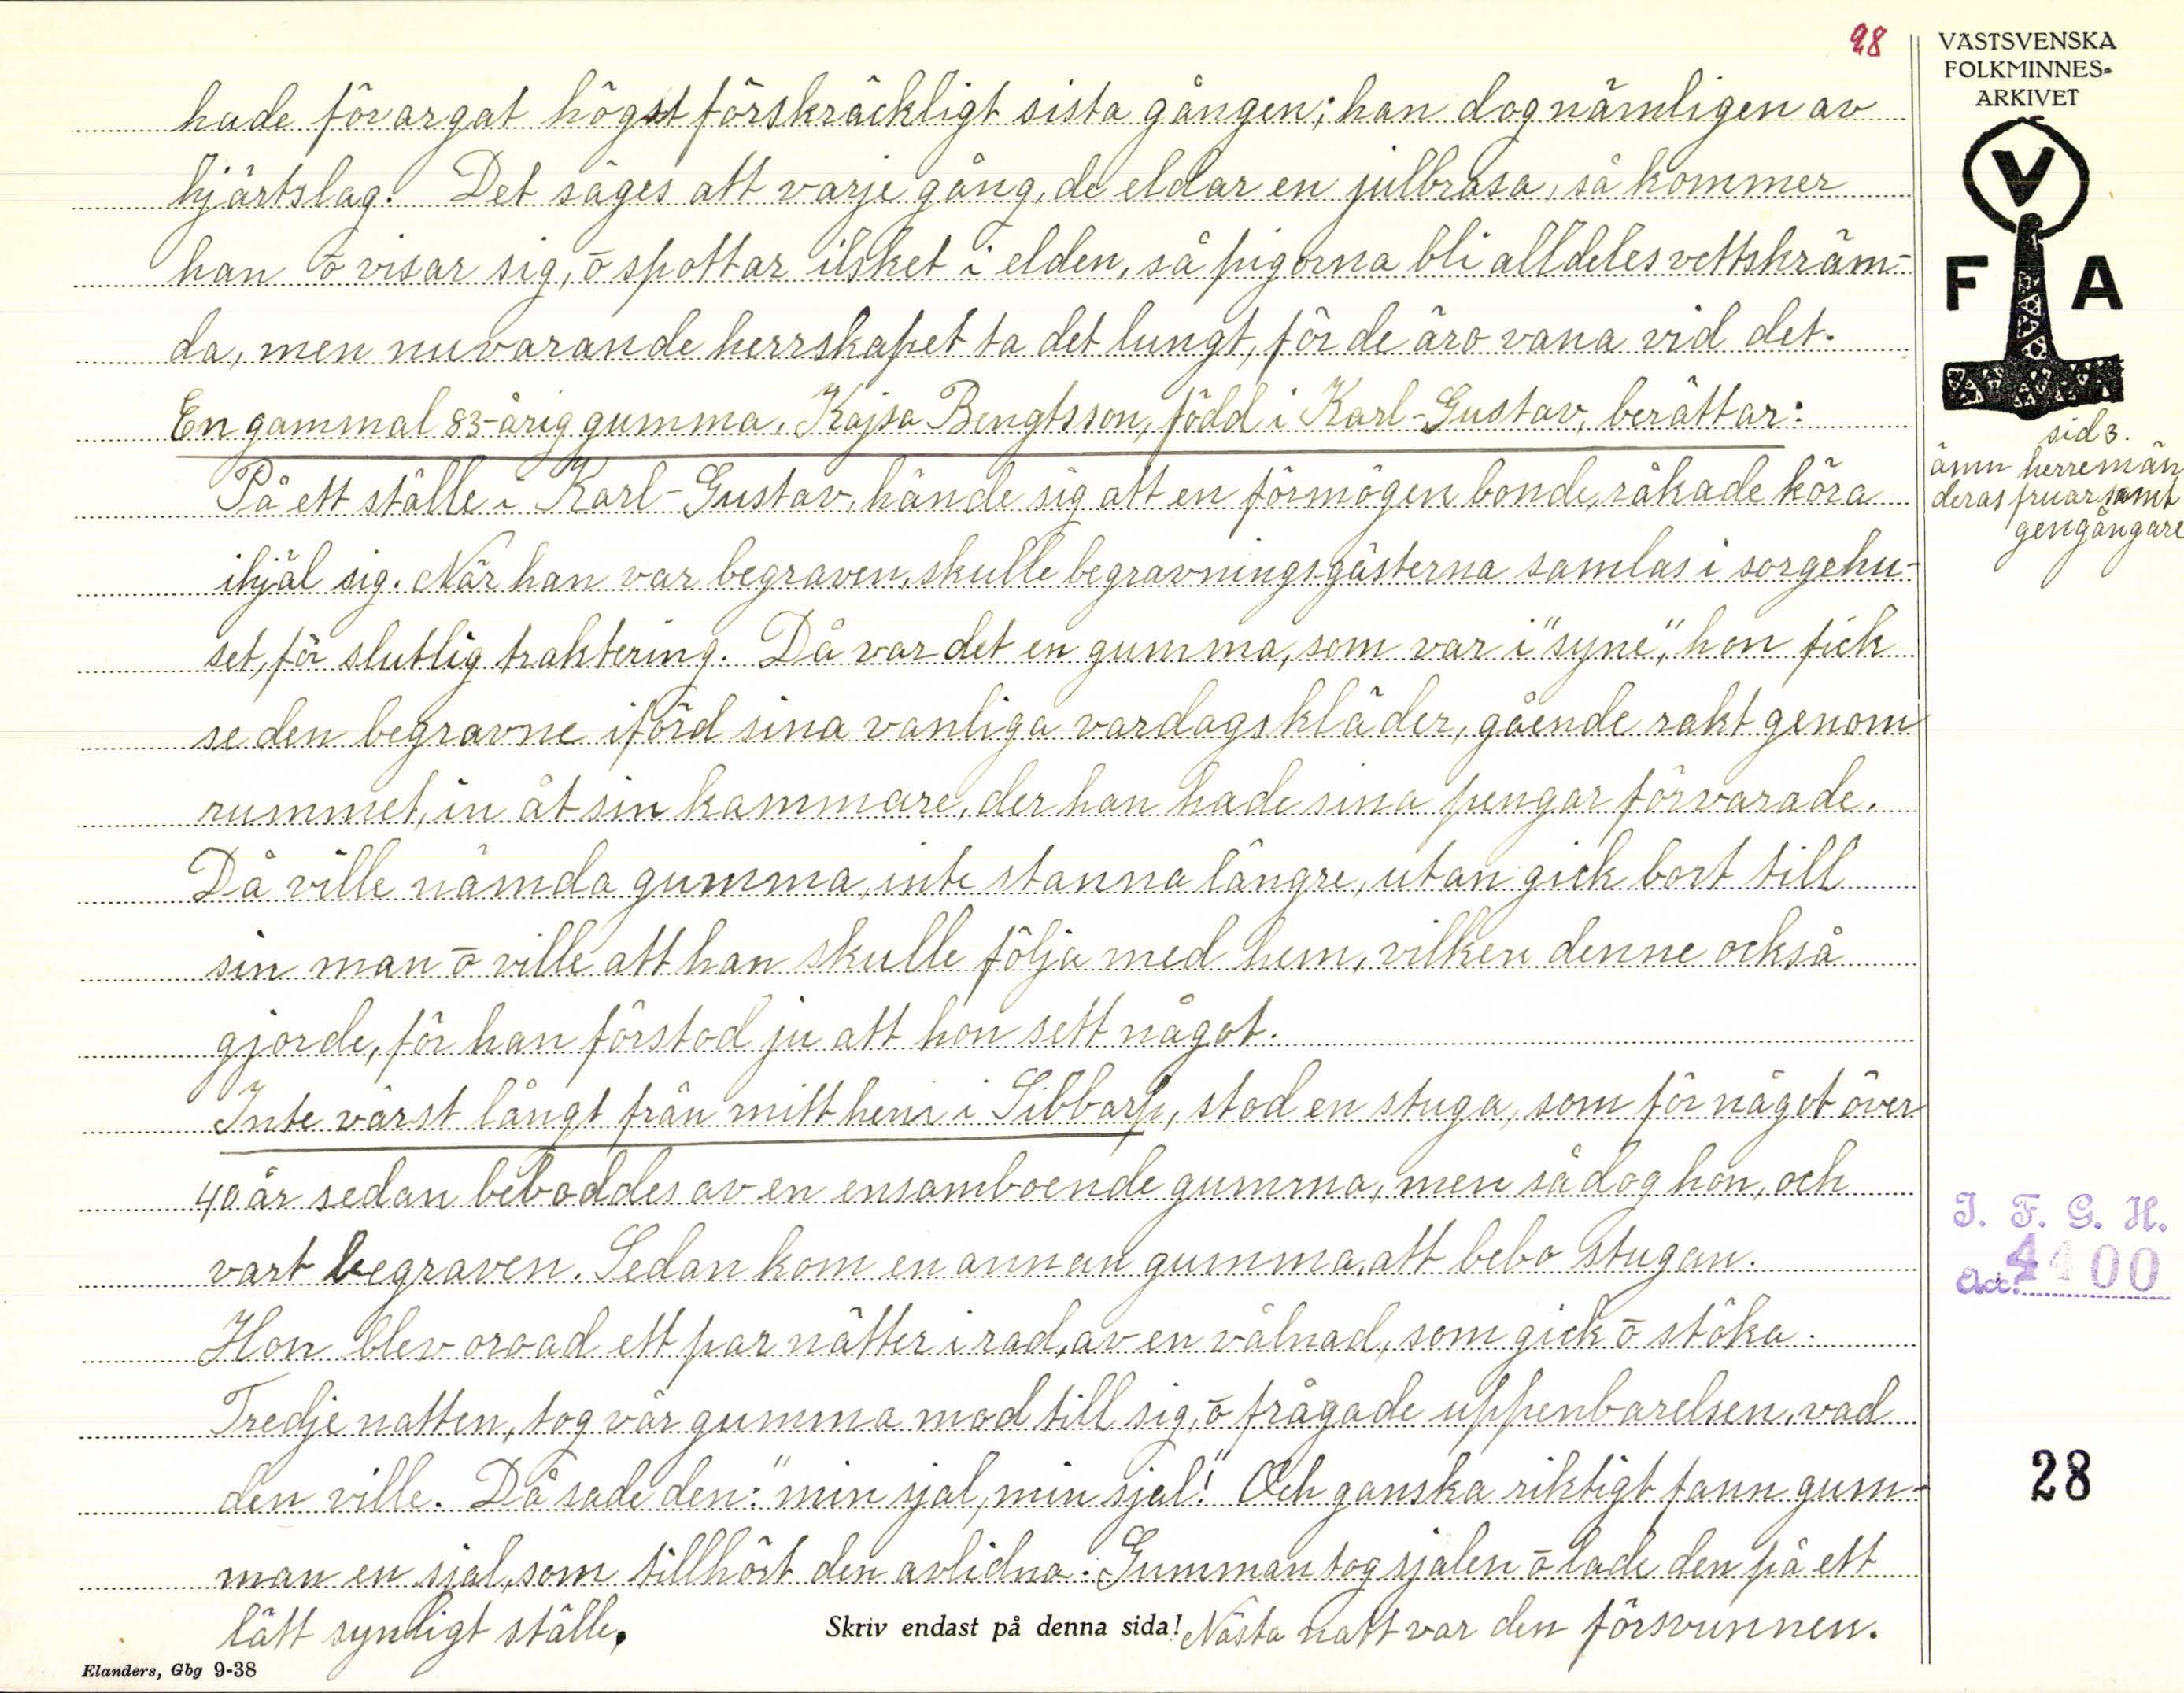 28
VÄSTSVENSKA
FOLKMINNES-
ARKIVET
V
F A
sid 3.
ämn herremän
deras fruar samt
gengångare
hade förargat högst förskräckligt sista gången; han dog nämligen av
hjärtslag. Det säges att varje gång, de eldar en julbrasa, så kommer
han ō visar sig, ō spottar ilsket i elden, så pigorna bli alldeles vettskräm-
da, men nuvarande herrskapet ta det lungt, för de äro vana vid det.
En gammal 83-årig gumma, Kajsa Bengtsson, född i Karl-Gustav, berättar:
På ett ställe i Karl-Gustav, hände sig att en förmögen bonde, råkade köra
ihjäl sig. När han var begraven, skulle begravningsgästerna samlas i sorgehu-
set, för slutlig traktering. Då var det en gumma, som var i "syne", hon fick
se den begravne iförd sina vanliga vardagskläder, gående rakt genom
rummet, in åt sin kammare, der han hade sina pengar förvarade.
Då ville nämda gumma, inte stanna längre, utan gick bort till
sin man ō ville att han skulle följa med hem, vilken denne också
gjorde, för han förstod ju att hon sett något.
Inte värst långt från mitt hem i Sibbarp, stod en stuga, som för något över
40 år sedan beboddes av en ensamboende gumma, men så dog hon, och
vart begraven. Sedan kom en annan gumma, att bebo stugan.
Hon blev oroad ett par nätter i rad, av en vålnad, som gick ō stöka.
Tredje natten, tog vår gumma mod till sig, ō frågade uppenbarelsen, vad
den ville. Då sade den: "min sjal, min sjal!" Och ganska riktigt fann gum-
man en sjal, som tillhört den avlidna. Gumman tog sjalen ō lade den på ett
lätt synligt ställe. Skriv endast på denna sida! Nästa natt var den försvunnen.
I. F. G. H.
Acc. 4400
28
Elanders, Gbg 9-38